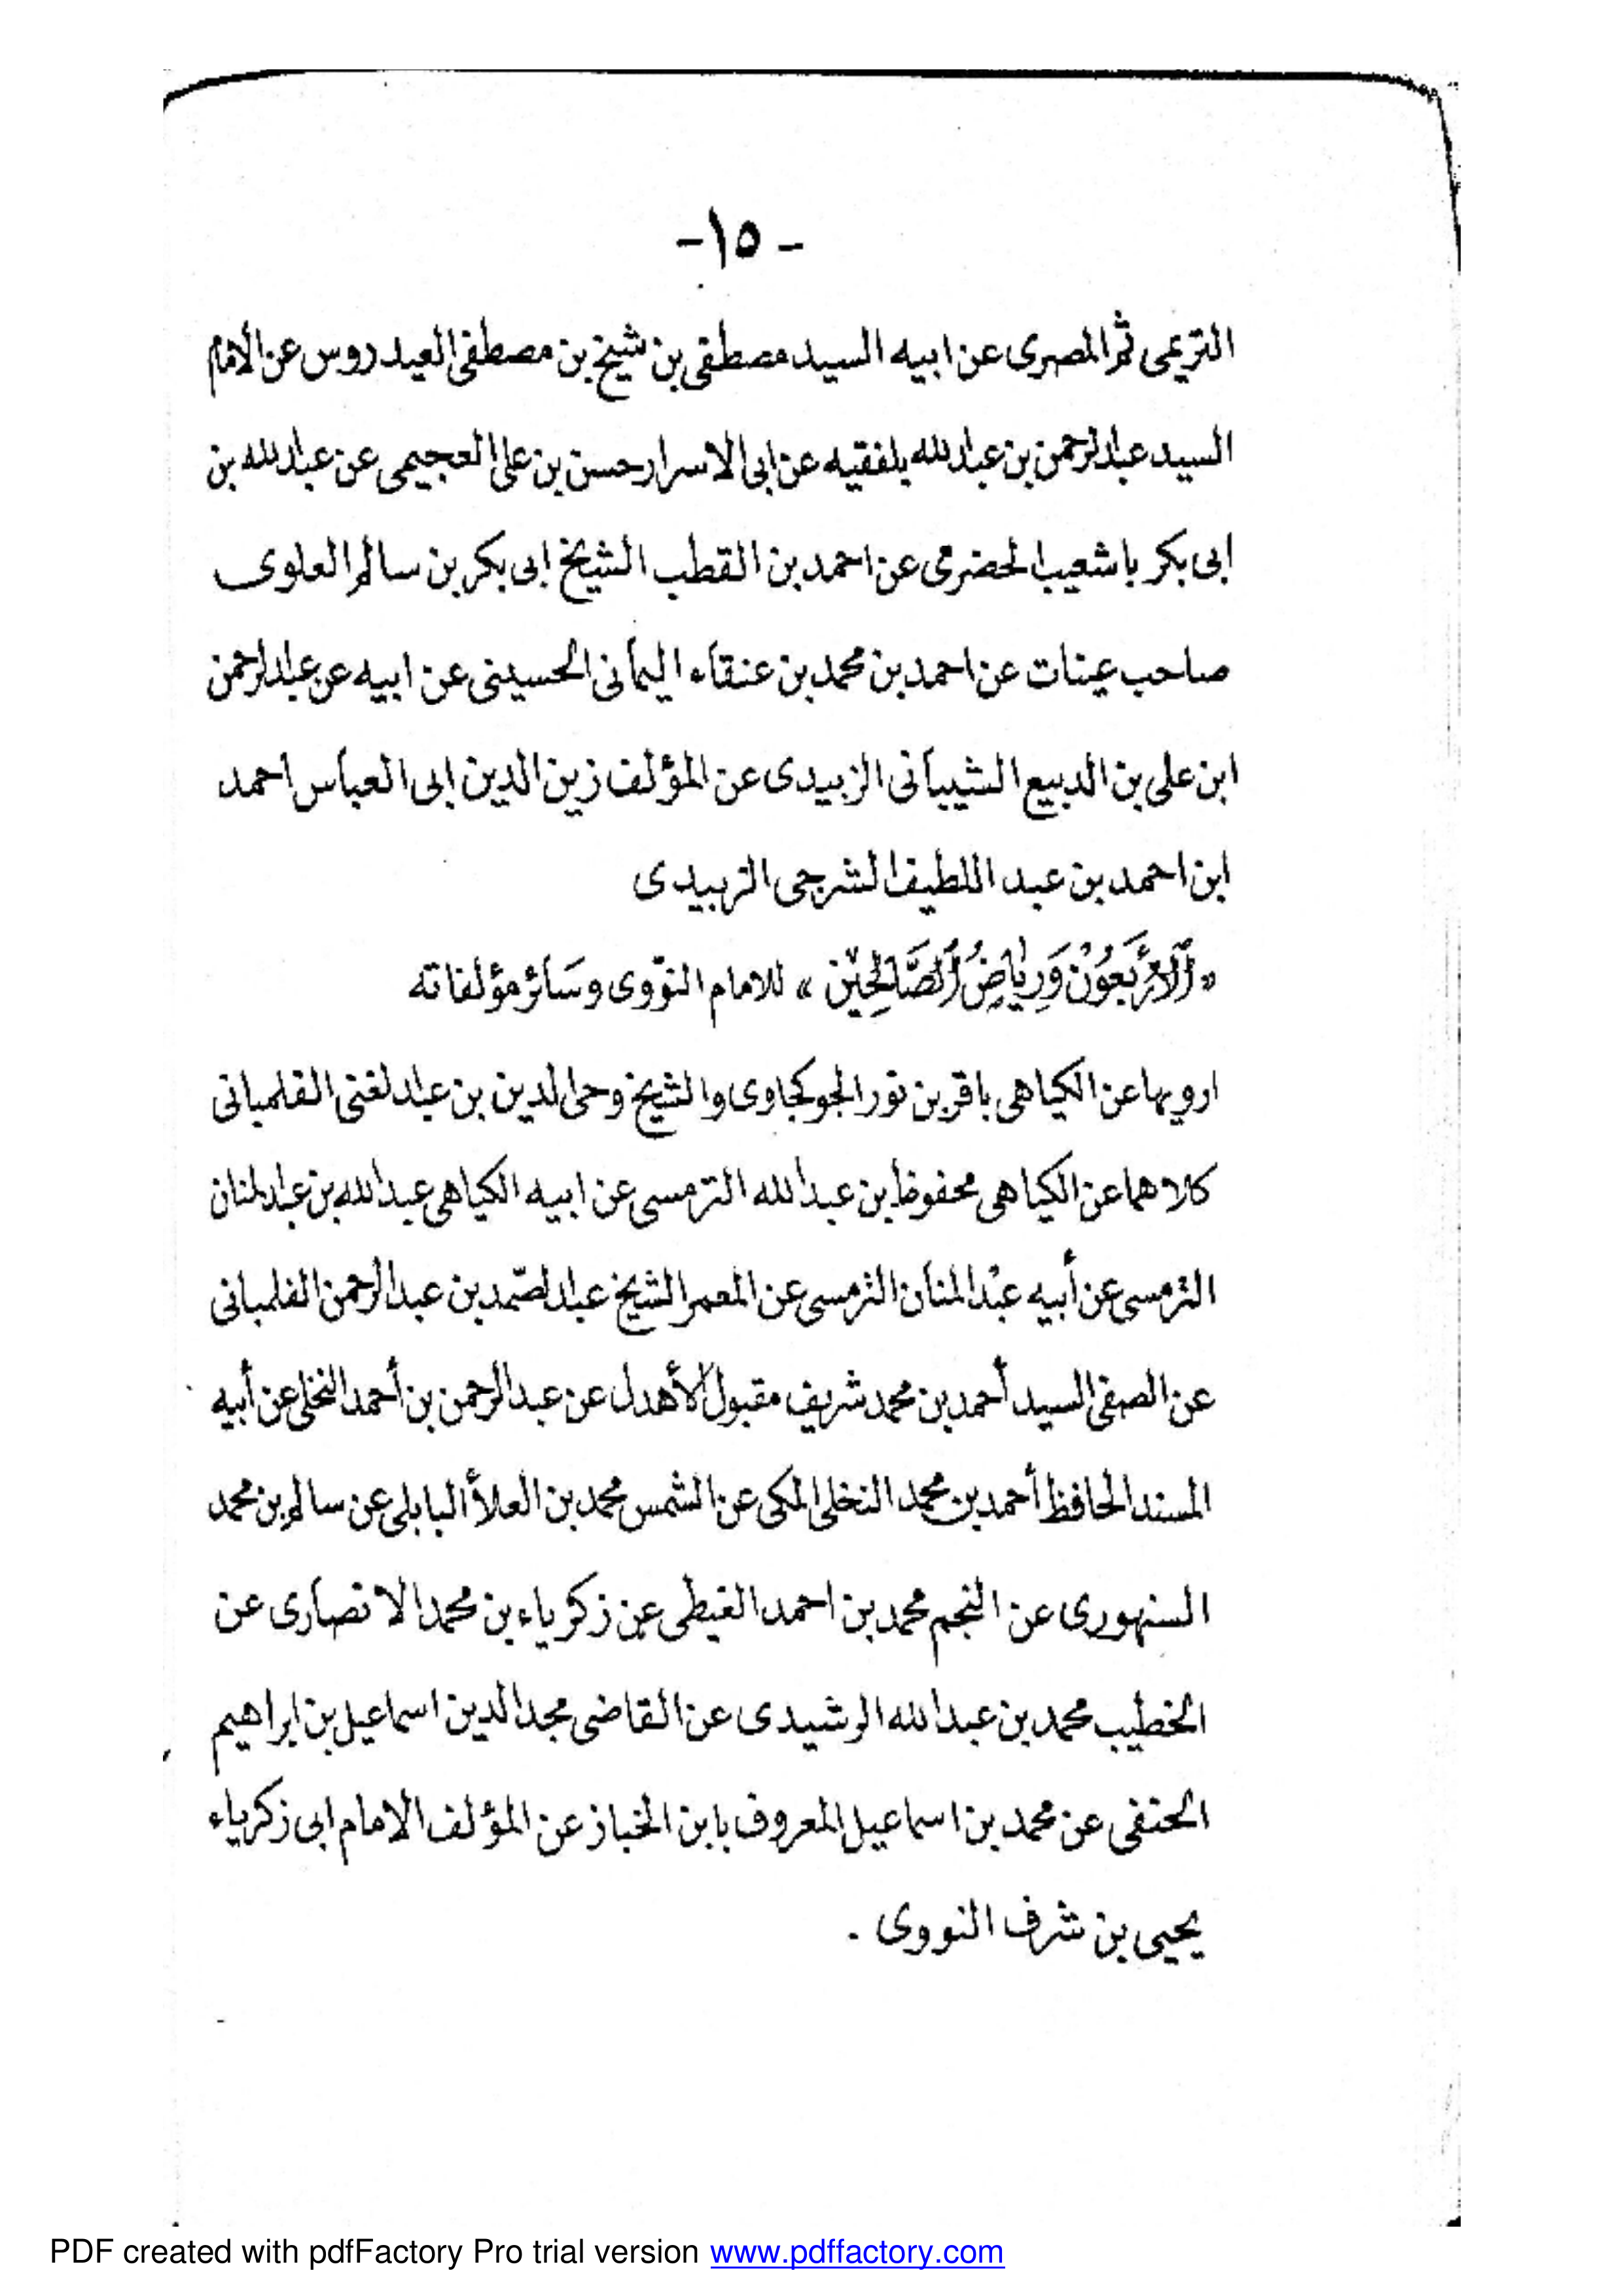 - ١٥ -
التريمى ثم المصرى عن ابيه السيد مصطفى بن شيخ بن مصطفى العيدروس عن الامام
السيد عبد الرحمن بن عبد الله بلفقيه عن ابى الاسرار حسن بن على العجيمى عن عبد الله بن
ابى بكر باشعيب الحضرمى عن احمد بن القطب الشيخ ابى بكر بن سالم العلوى
صاحب عينات عن احمد بن محمد بن عنقاء اليمانى الحسينى عن ابيه عن عبد الرحمن
ابن على بن الديبع الشيبانى الزبيدى عن المؤلف زين الدين ابى العباس احمد
ابن احمد بن عبد اللطيف الشرجى الزبيدى
« اَلْأَرْبَعُوْنَ وَرِيَاضُ الصَّالِحِيْن » للامام النووى وسائر مؤلفاته
ارويها عن الكياهى باقر بن نور الجوكجاوى والشيخ وحى الدين بن عبد الغنى الفلمبانى
كلاهما عن الكياهى محفوظ بن عبد الله الترمسى عن ابيه الكياهى عبد الله بن عبد المنان
الترمسى عن أبيه عبد المنان الترمسى عن المعمر الشيخ عبد الصّمد بن عبد الرحمن الفلمبانى
عن الصفى السيد أحمد بن محمد شريف مقبول الأهدل عن عبد الرحمن بن أحمد النخلى عن أبيه
المسند الحافظ أحمد بن محمد النخلى المكى عن الشمس محمد بن العلاء البابلى عن سالم بن محمد
السنهورى عن النجم محمد بن احمد الغيطى عن زكرياء بن محمد الانصارى عن
الخطيب محمد بن عبد الله الرشيدى عن القاضى مجد الدين اسماعيل بن ابراهيم
الحنفى عن محمد بن اسماعيل المعروف بابن الخباز عن المؤلف الامام ابى زكرياء
يحيى بن شرف النووى .
PDF created with pdfFactory Pro trial version www.pdffactory.com